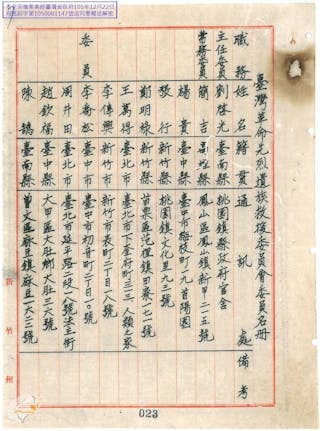 全宗檔案業經臺灣省政府105年12月22日
府民許字第1050001147號函同意概括解密
臺灣革命先烈遺族救援委員會委員名冊
職務 姓名 籍貫 通訊處 備考
主任委員 劉啓光 臺南縣 桃園鎮縣政府官舍
常務委員 簡吉 高雄縣 鳳山區鳳山鎮新甲二一五號
楊貴 臺中縣 臺中市梅枝町一九首陽園
敬行 新竹縣 桃園鎮文化里九三號
鄭明祿 新竹縣 苗栗區 鎮田寮一七一號
王萬得 臺北市 臺北市下奎府町三一三 人類之家
李傳興 新竹市 新竹市表町二丁目一八號
委員 李喬松 臺中市 臺中市初音町二丁目一〇號
周井田 臺北市 臺北市延平路二段八八號
趙欽福 臺中縣 大甲區大肚鄉大肚三六號
陳 臺南縣 曾文區麻豆鎮麻豆六二二號
新竹州
023